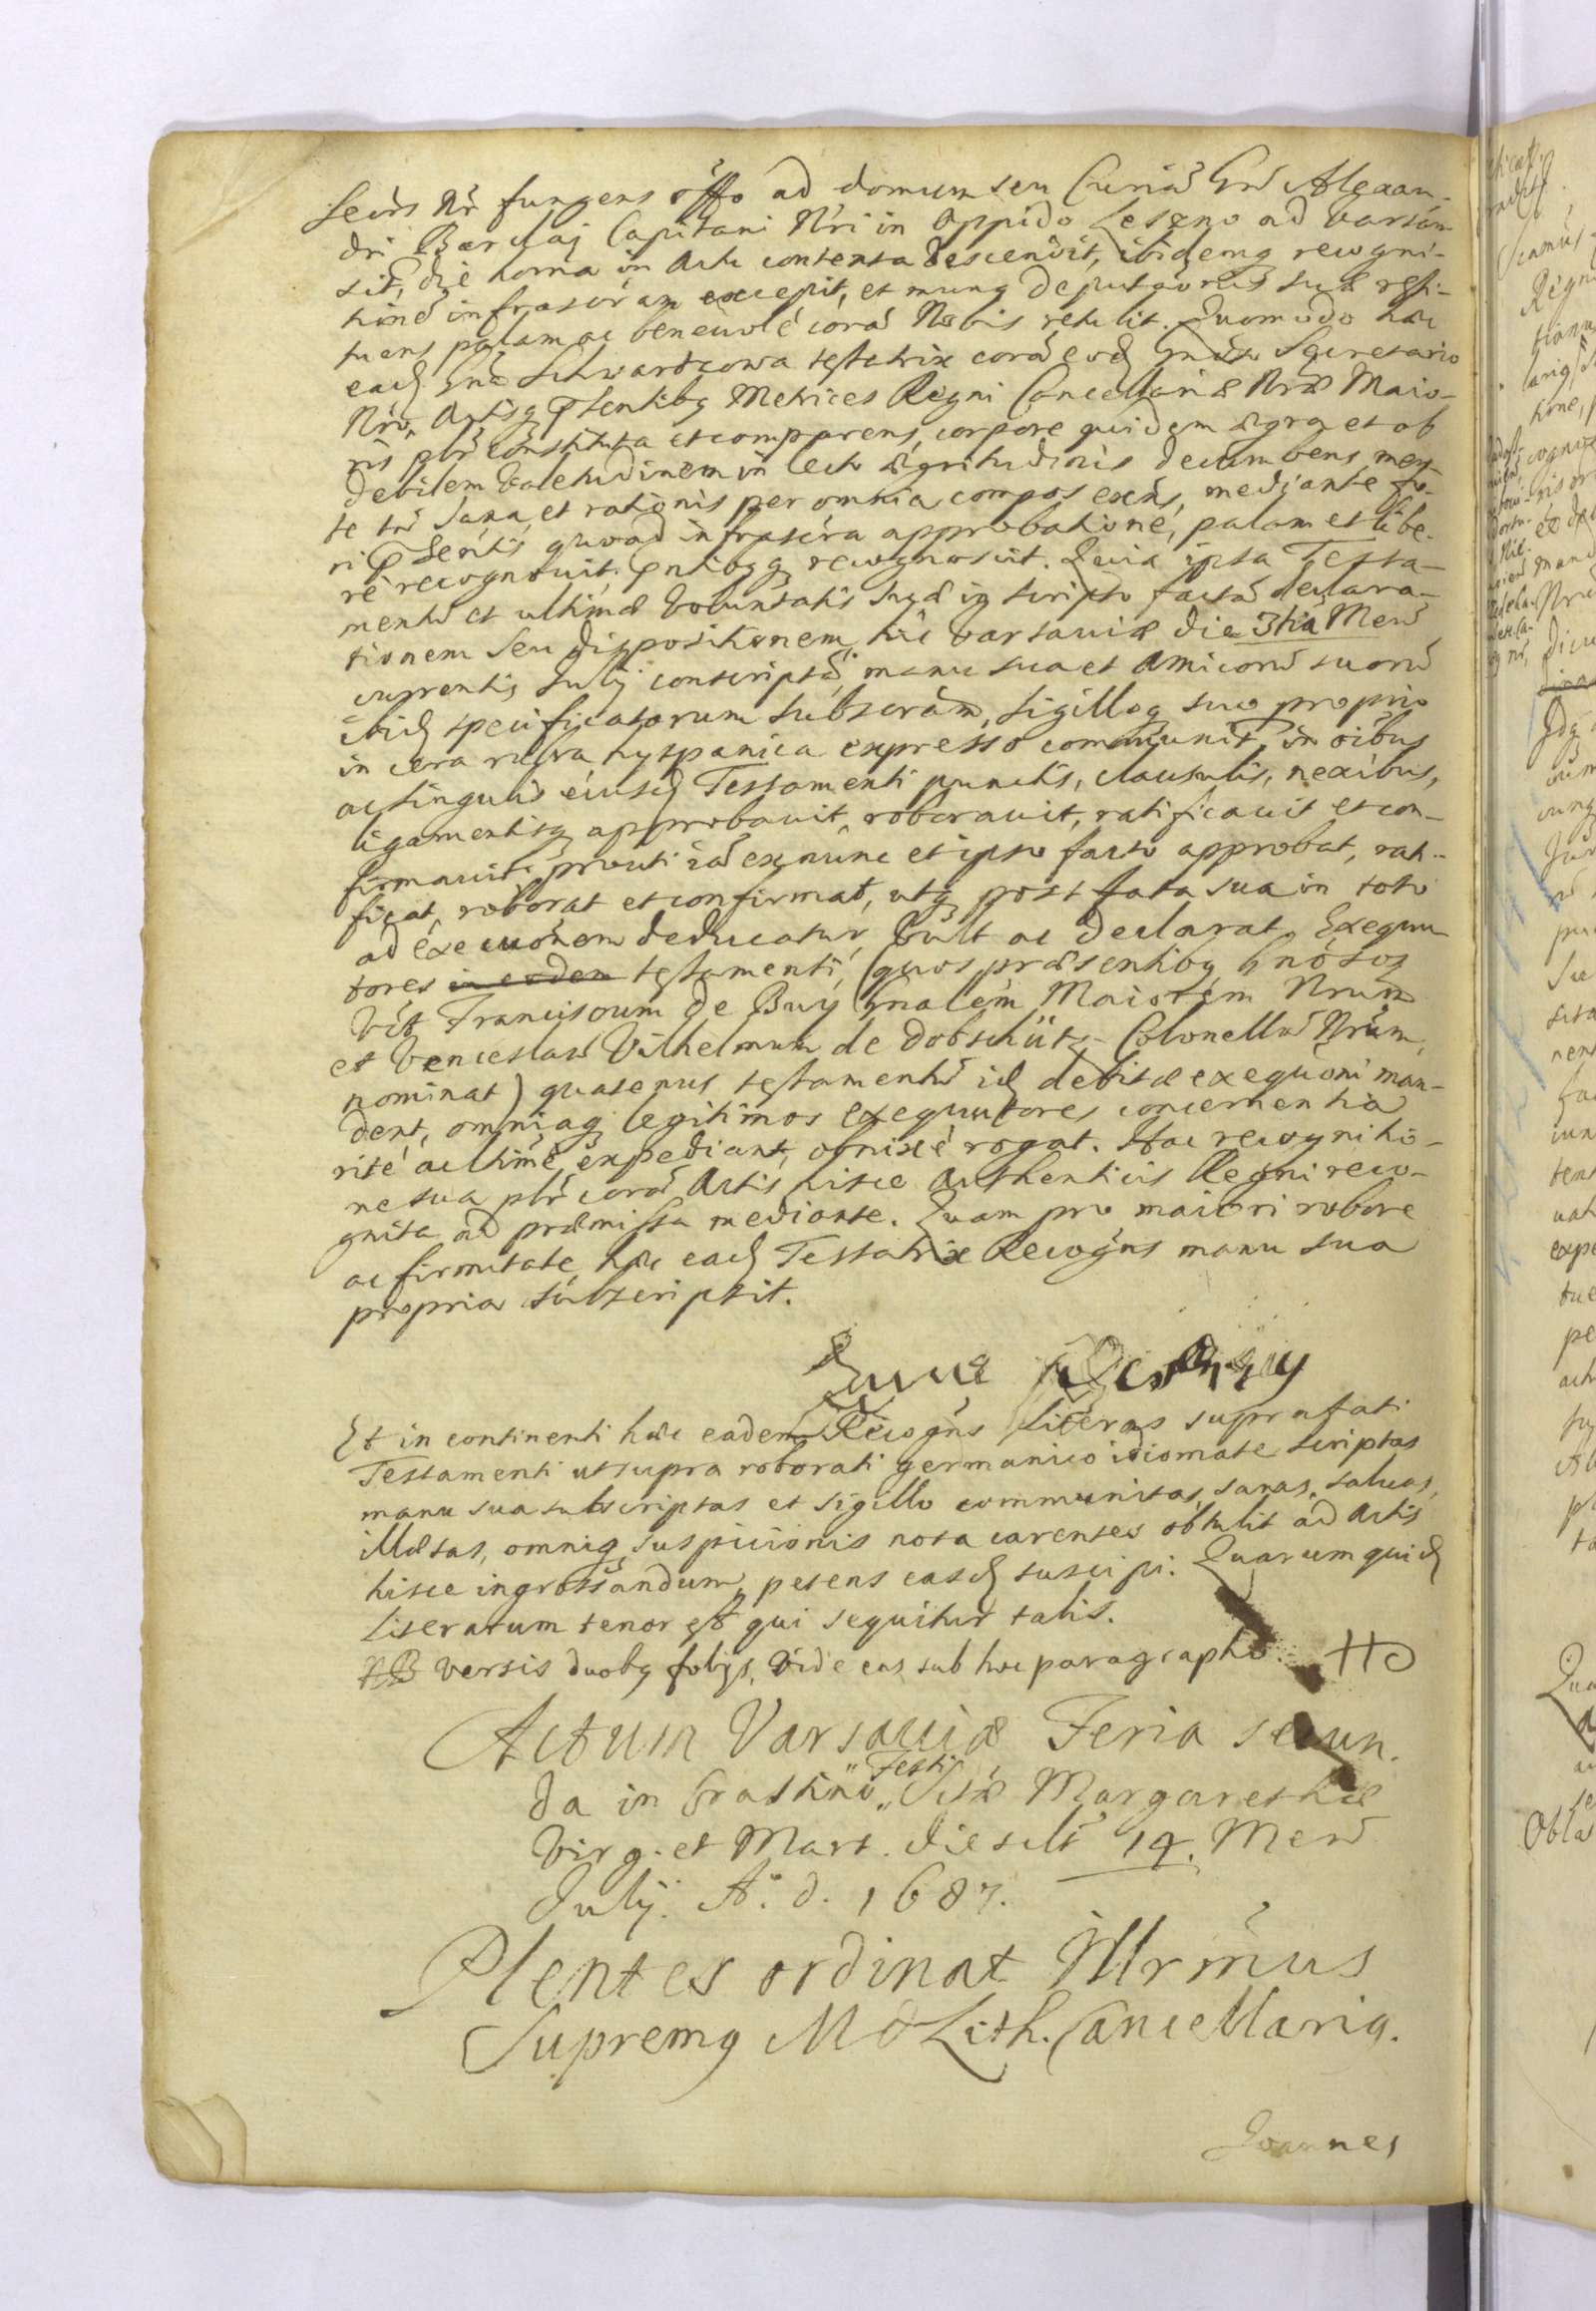 Secrs Nr fungens offo ad domum seu Curiā Gn̄i Alexan-
dri Barclaj Capitani Nri in Oppido Leszno ad Varsāuī
sit, die horna in Actu contenta descendit, ibidemq recogni-
tionē infrascrām excepit, et nunq deputaōris suæ resti-
tuens palam ac benevolē corā Nobis retulit. Quomodo hæc
eadȝ Gnā Schwartzowa testatrix corā eodȝ Gnōso Secretario
Nro, Actisq pntibq Metrices Regni Cancellariæ Nræ Maio-
ris plr constituta et comparens, corpore quidem ægra et ob
debilem valetudinem in lecto ægritudinis decumbens, men-
te tn̄ sana, et rationis per omnia compos exn̄s, mediante fo-
ri pntis quoad infrascra approbationē, palam et libe-
rē recognovit pntibq q recognoscit. Quia ipsa Testa-
mentū et ultimæ voluntatis suæ in scripto factā declara-
tionem seu dispositionem, hic Varsaviæ die 3tia Men̄
currentis July conscriptā, manu sua et Amicorū suorū
ibidȝ specificatorum subscrām, sigilloq suo proprio
in cera rubra hyspanica expresso communit, in oibus
ac singulis eiusdȝ Testamenti punctis, clausulis, nexibus,
ligamentisq approbavit, roboravit, ratificavit et con-
firmavit, prouti iā ex nunc et ipso facto approbat, rati-
ficat, roborat et confirmat, utq post fata sua in toto
ad execuōnem deducatur, vult ac declarat. Exequu-
tores in eodem testamenti, (quos præsentibq Gnōsos
Vic̄ Franciscum de Buy Gnalem Maiorem Nrum
et Venceslaū Vilhelmum de Dobschütz Colonellū Nrūm,
nominat) quatenus testamentū idȝ debitæ exequōni man-
dent, omniaq legitimos exequutores concernentia
ritē ac timē expediant, obnixē rogat. Hac recognitio-
ne sua plr corā Actis hisce Authenticis Regni reco-
gnita ad præmissa mediante. Quam pro maiori robore
ac firmitate, hæc eadȝ Testatrix Recogns manu sua
propria subscripsit.
Et in continenti hæc eadem Recogns Literas suprafati
Testamenti ut supra roborati germanico idiomate scriptas
manu sua subscriptas et sigillo communitas, sanas, salvas,
illæsas, omniq suspicionis nota carentes obtulit ad Actis
hisce ingrossandum, petens easdȝ suscipi. Quarum quidȝ
literarum tenor est qui sequitur talis.
NB versis duobq folijs, vide eas sub hoc paragrapho.
Actum Varsaviæ Feria secun.
da in Crastino Festi Sctæ Margarethæ
Virg. et Mart. die scilt 14. Men̄
July. Aº. d. 1687.
Plentes ordinat Illrmus
Supremq M D Lith. Cancellariq.
Joannes